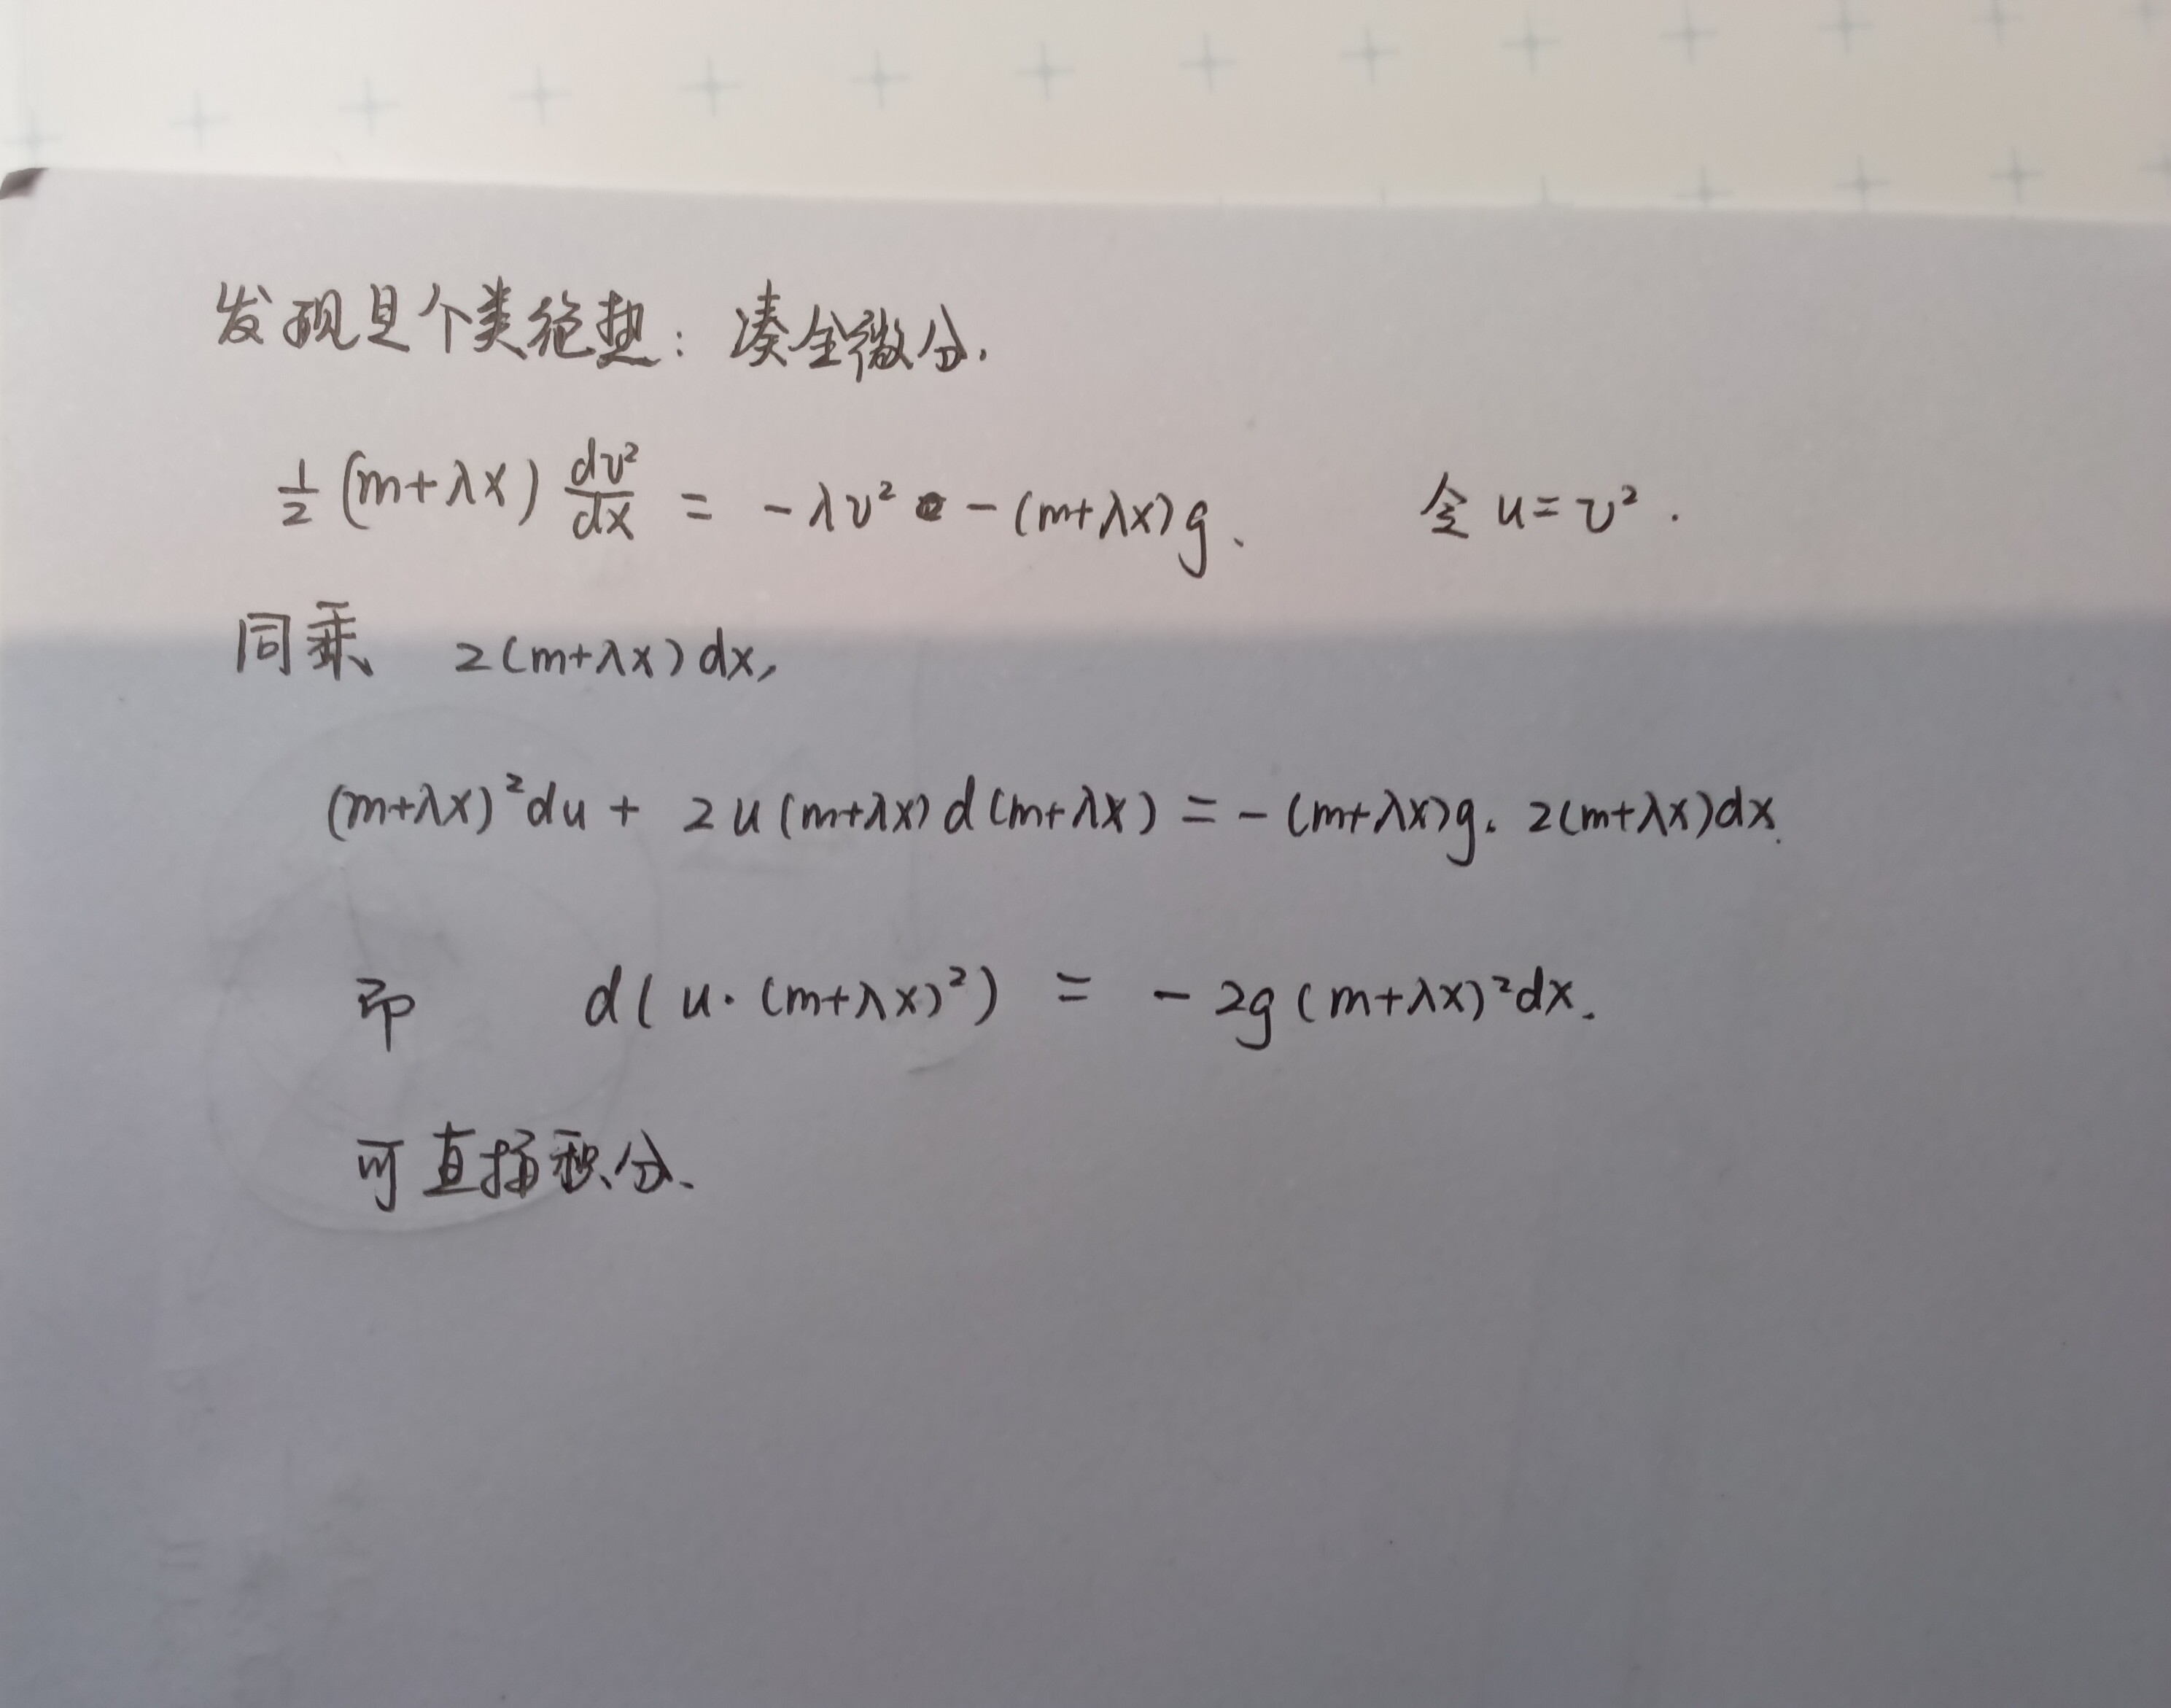 发现是个类绝热：凑全微分.
½ (m+λx) dv²/dx = -λv² - (m+λx)g、 令 u=v².
同乘 2(m+λx)dx,
(m+λx)²du + 2u(m+λx)d(m+λx) = -(m+λx)g. 2(m+λx)dx.
即 d(u·(m+λx)²) = -2g(m+λx)²dx.
可直接积分、